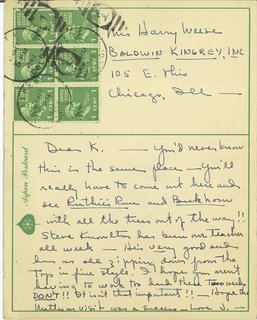 Mrs Harry Weese
BALDWIN KINGREY, INC
105 E. Ohio
Chicago, Ill —
1 CENT 1
1 CENT 1
1 CENT 1
Aspen Postcard
Dear K. — You'd never know
this is the same place — You'll
really have to come out here and
see Ruthie's Run and Buckhorn
with all the trees out of the way!!
Steve Knowlton has been our teacher
all week — He's very good and
has us all zipping down from the
top in fine style. I hope you aren't
having to work too hard
DON'T!! It isn't that important!! — Hope the
visit was a success — Love J. —